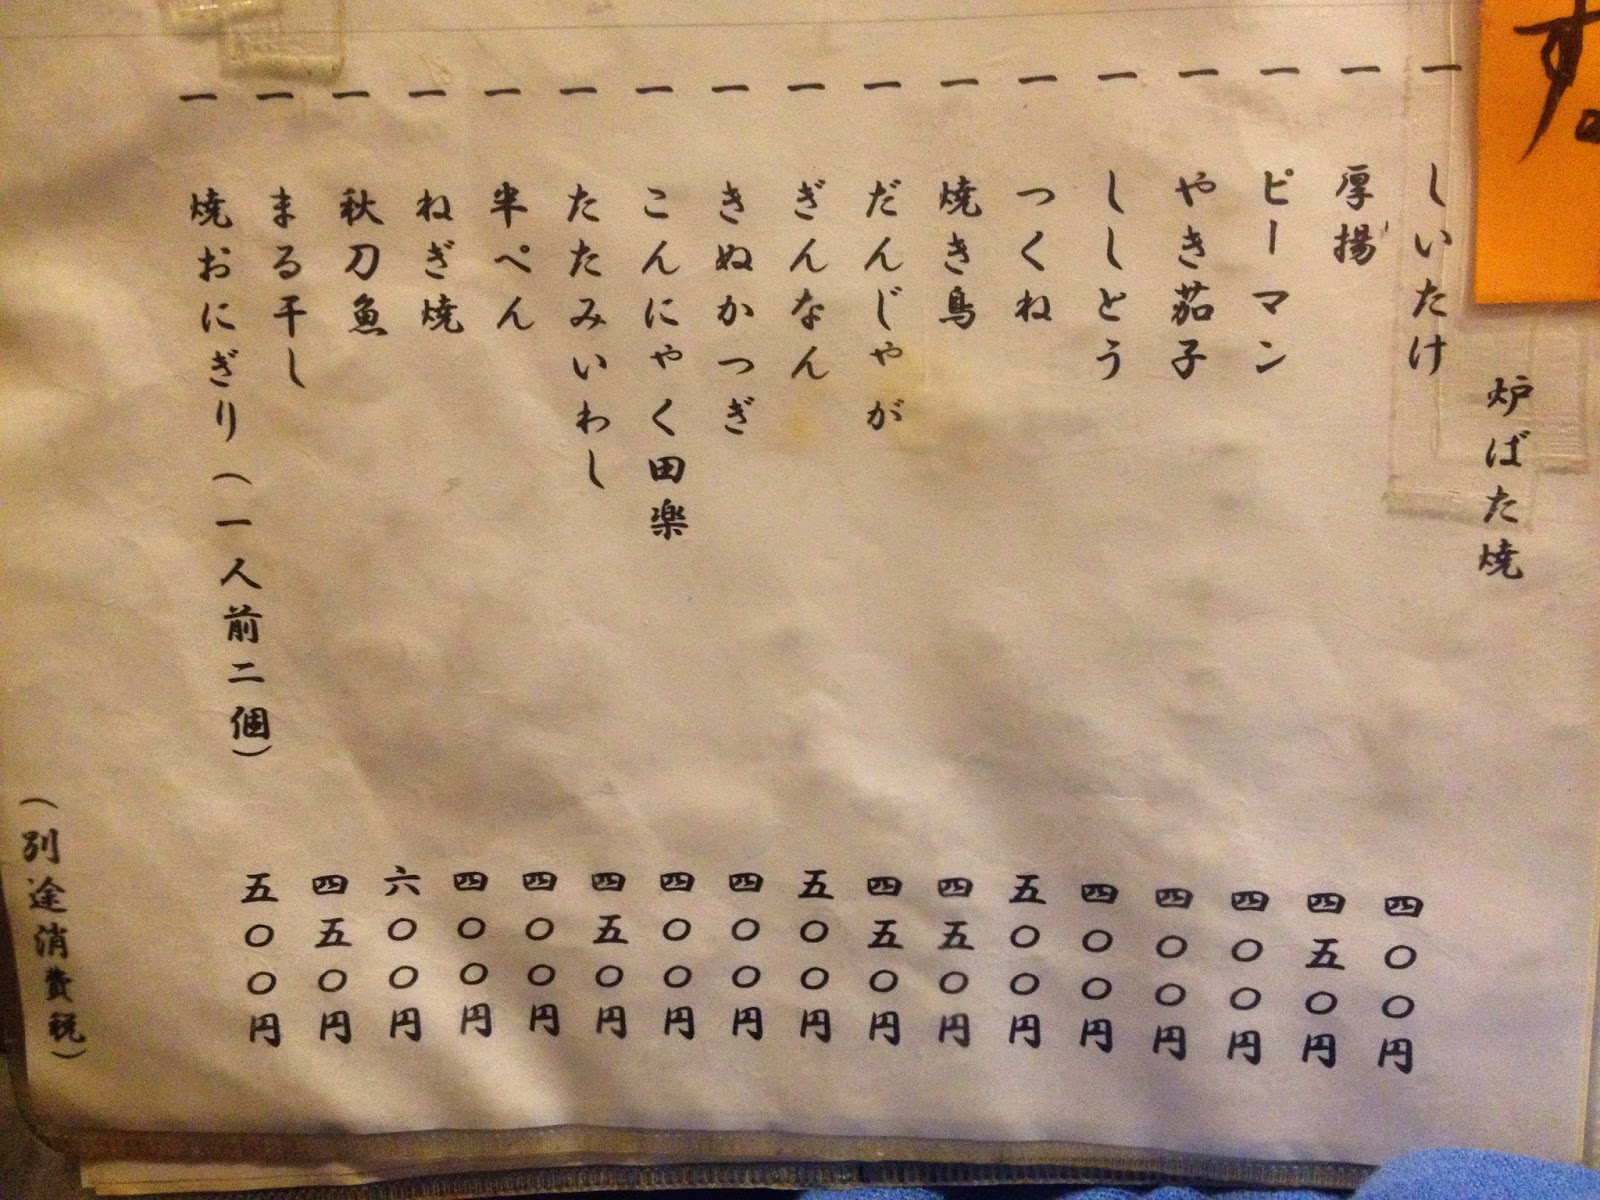 炉ばた焼
一 しいたけ 四〇〇円
一 厚揚 四五〇円
一 ピーマン 四〇〇円
一 やき茄子 四〇〇円
一 ししとう 四〇〇円
一 つくね 五〇〇円
一 焼き鳥 四五〇円
一 だんじゃが 四五〇円
一 ぎんなん 五〇〇円
一 きぬかつぎ 四〇〇円
一 こんにゃく田楽 四〇〇円
一 たたみいわし 四五〇円
一 半ぺん 四〇〇円
一 ねぎ焼 四〇〇円
一 秋刀魚 六〇〇円
一 まる干し 四五〇円
一 焼おにぎり(一人前二個) 五〇〇円
(別途消費税)